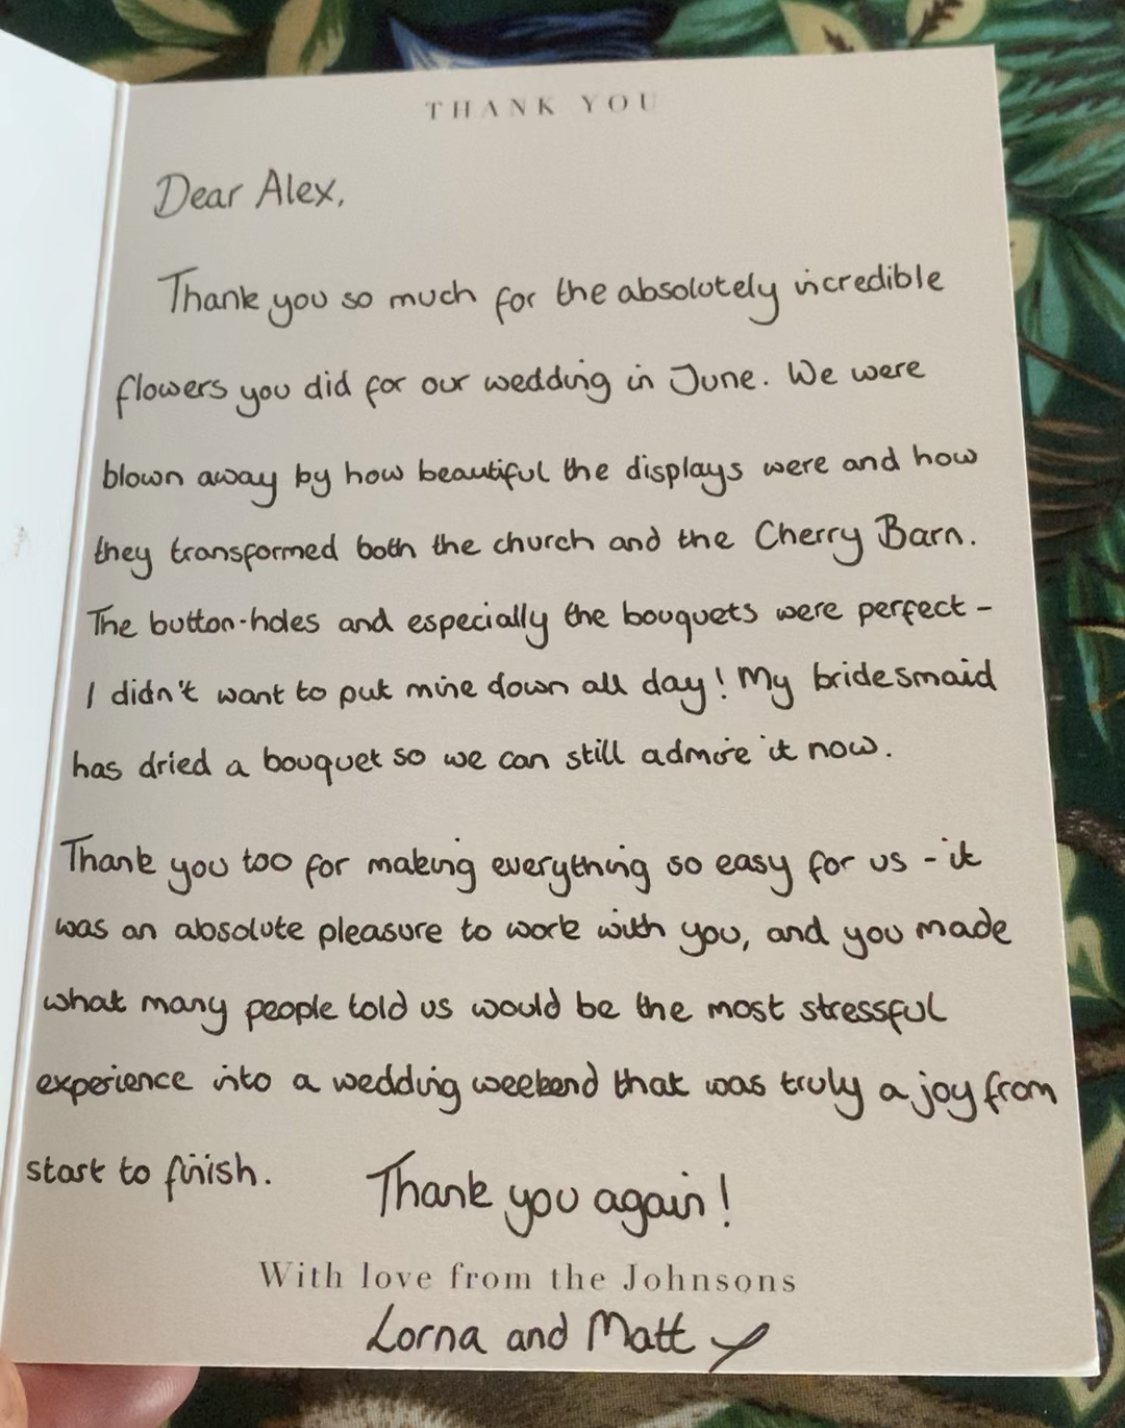 THANK YOU
Dear Alex,
Thank you so much for the absolutely incredible
flowers you did for our wedding in June. We were
blown away by how beautiful the displays were and how
they transformed both the church and the Cherry Barn.
The button-holes and especially the bouquets were perfect -
I didn't want to put mine down all day! My bridesmaid
has dried a bouquet so we can still admire it now.
Thank you too for making everything so easy for us - it
was an absolute pleasure to work with you, and you made
what many people told us would be the most stressful
experience into a wedding weekend that was truly a joy from
start to finish. Thank you again!
With love from the Johnsons
Lorna and Matt x